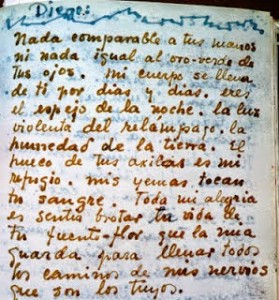 Diego:
Nada comparable a tus manos
ni nada igual al oro-verde de
tus ojos. mi cuerpo se llena
de ti por días y días. eres
el espejo de la noche. la luz
violenta del relámpago. la
humedad de la tierra. El
hueco de tus axilas es mi
refugio. mis yemas tocan
tu sangre. Toda mi alegría
es sentir brotar tu vida de
tu fuente-flor que la mia
guarda para llenar todos
los caminos de mis nervios
que son los tuyos.